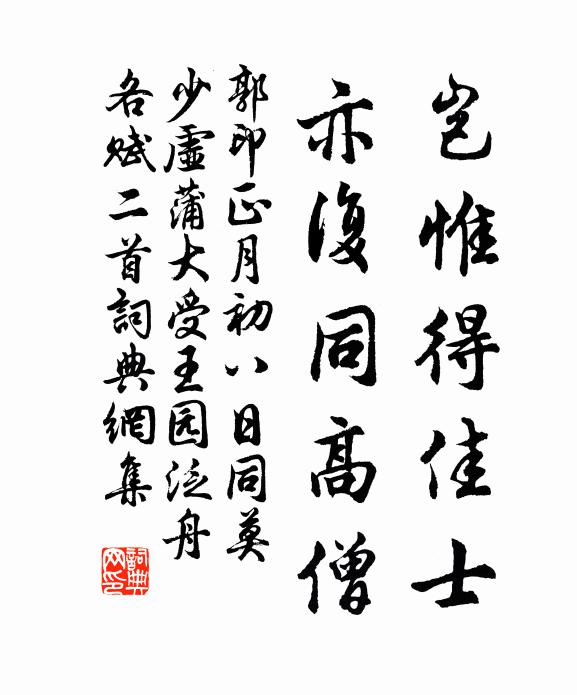 岂惟得佳士
亦復同高僧
郭印正月初八日同莫
少虛蒲大受王园泛舟
各赋二首詞典網集
詞典
网印